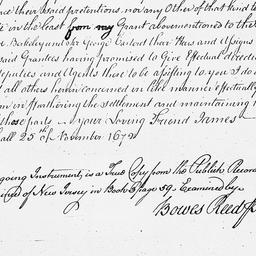 and their said pretentions, nor any Other of that kind to
in the least from my Grant abovementioned to the
Berkeley and Sir George Carteret their Heirs and Assigns
said Grantees having promised to Give Effectual directions
Deputies and Agents there to be assisting to you I do
all others herein concerned in like manner effectually
in furthering the settlement and maintaining the
those parts. — Your Loving Friend James
all 25th November 1672
going Instrument, is a True Copy from the Publick Records
of New Jersey in Book 3 page 59. Examined by
Bowes Reed